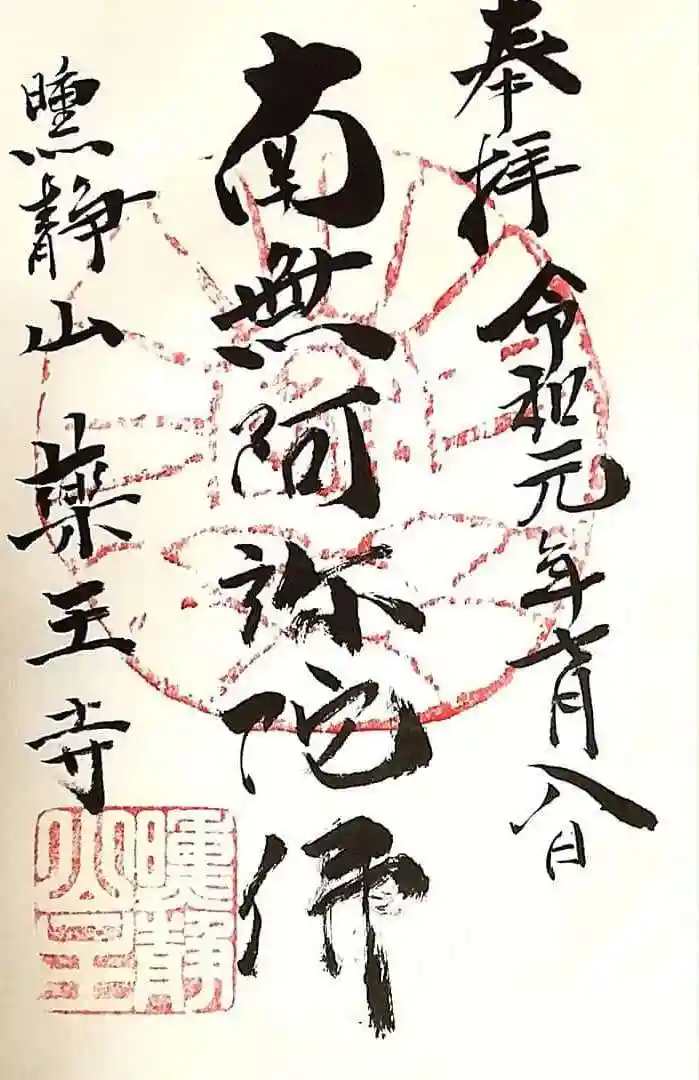 奉拝 令和元年七月八日
南無阿弥陀佛
曛静山 薬王寺